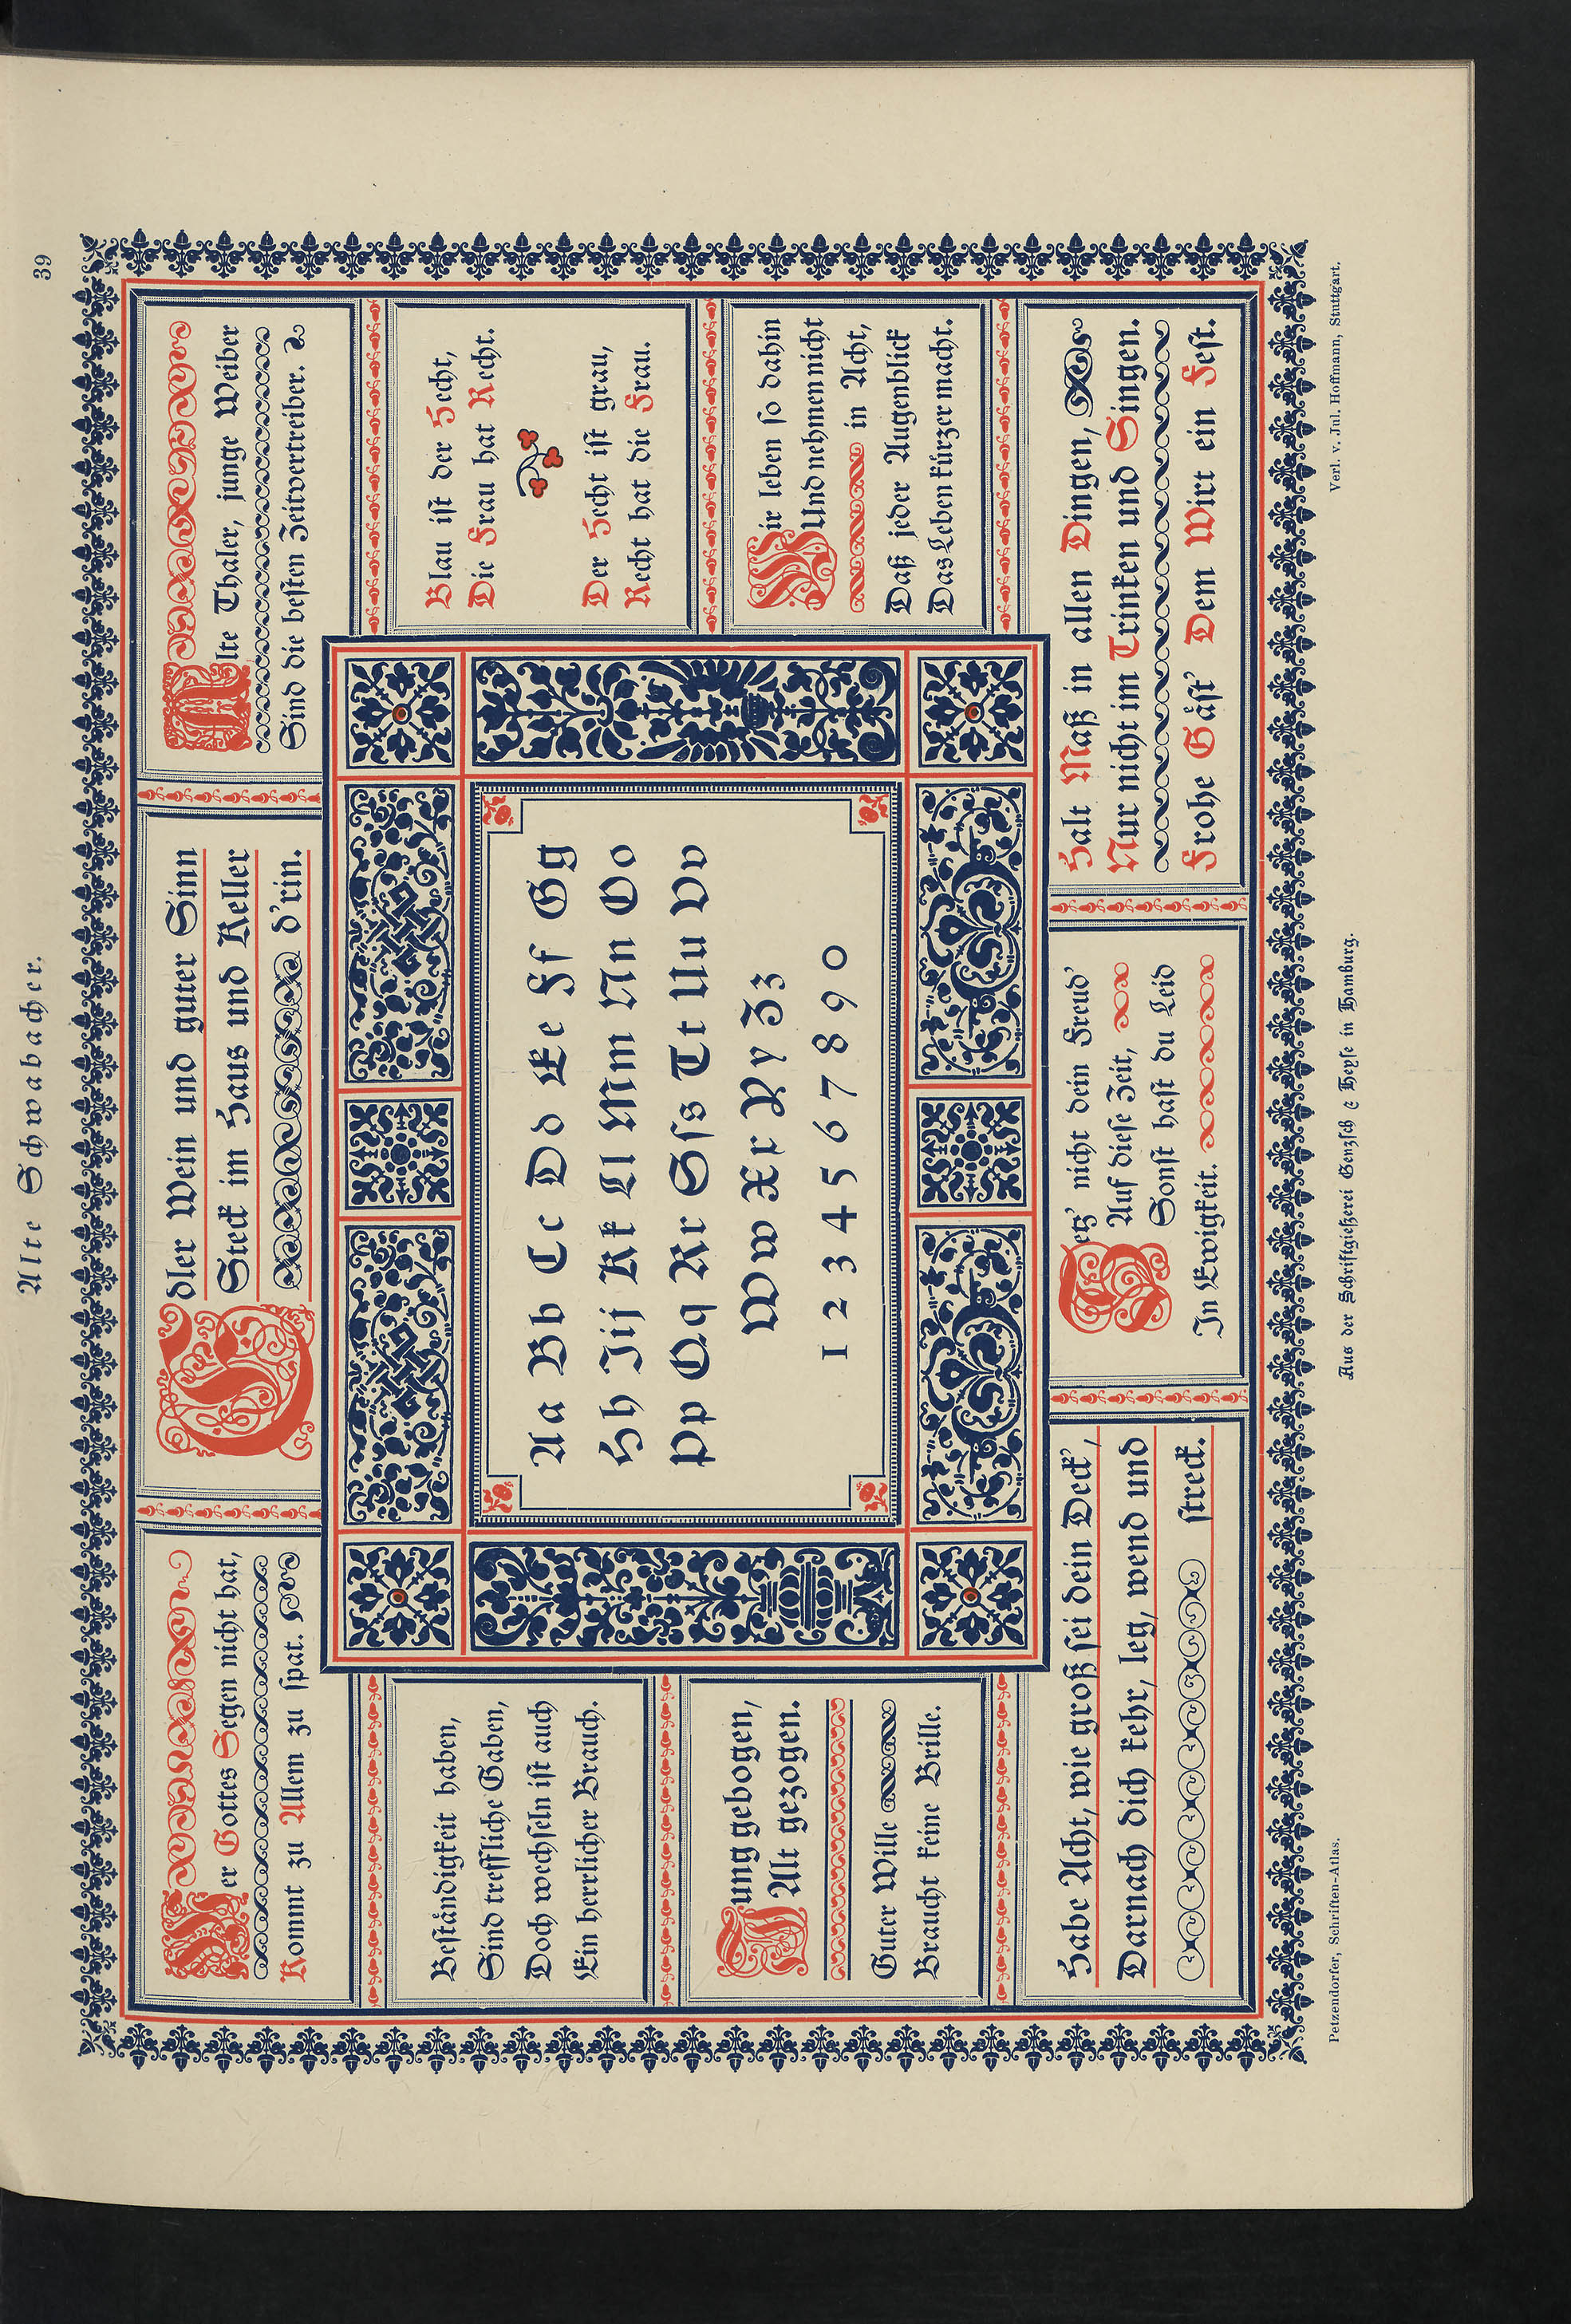 Alte Schwabacher.
39
Wer Gottes Segen nicht hat,
Kommt zu Allem zu ſpat.
Edler Wein und guter Sinn
Steck im Haus und Keller
d'rin.
Alte Thaler, junge Weiber
Sind die beſten Zeitvertreiber.
Beſtändigkeit haben,
Sind treffliche Gaben,
Doch wechſeln iſt auch
Ein herrlicher Brauch.
Jung gebogen,
Alt gezogen.
Guter Wille
Braucht keine Brille.
Aa Bb Cc Dd Ee Ff Gg
Hh Jij Kk Ll Mm Nn Oo
Pp Qq Rr Sſs Tt Uu Vv
Ww Xx Yy Zz
1 2 3 4 5 6 7 8 9 0
Blau iſt der Hecht,
Die Frau hat Recht.
Der Hecht iſt grau,
Recht hat die Frau.
Wir leben ſo dahin
Und nehmen nicht
in Acht,
Daß jeder Augenblick
Das Leben kürzer macht.
Habe Acht, wie groß ſei dein Deck',
Darnach dich kehr, leg, wend und
ſtreck.
Setz' nicht dein Freud'
Auf dieſe Zeit,
Sonſt haſt du Leid
In Ewigkeit.
Halt Maß in allen Dingen,
Nur nicht im Trinken und Singen.
Frohe Gäſt' Dem Wirt ein Feſt.
Petzendorfer, Schriften-Atlas.
Aus der Schriftgießerei Genzſch & Heyſe in Hamburg.
Verl. v. Jul. Hoffmann, Stuttgart.